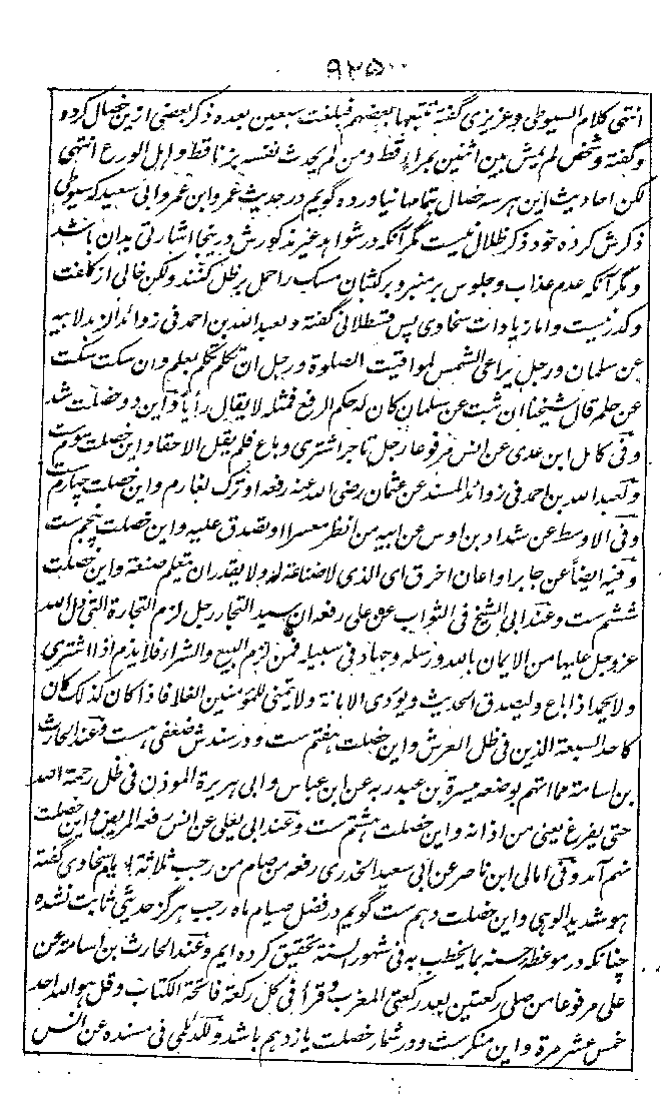 ۹۲۵
انتهى كلام السيوطى وعزيزى گفته تتبعها بعضهم فبلغت سبعين بعده ذكر بعضى ازين خصال كرده
وگفته وشخص لم يمش بين اثنين بمراء قط ومن لم يحدث نفسه بزنا قط واهل الورع انتهى
لكن احاديث اين هر سه خصال بتمامها نياورده گويم در حديث عمر وابن عمر وابى سعيد كه سيوطى
ذكرش كرده خود ذكر ظلال نيست مگر آنكه در شواهد غير مذكورش درينجا اشارتى بدان باشد
ومگر آنكه عدم عذاب وجلوس بر منبر وبر كثبان مسك را حمل بر ظل كنند ولكن خالى از كلفت
وكدر نيست واما زيادات سخاوى پس قسطلانى گفته ولعبد الله بن احمد فى زوائد الزهد لابيه
عن سلمان ورجل يراعى الشمس لمواقيت الصلوة ورجل ان تكلم تكلم بعلم وان سكت سكت
عن حلم قال شيخنا ان ثبت عن سلمان كان له حكم الرفع فمثله لا يقال رأيا واين دو خصلت شد
وفى كامل ابن عدى عن انس مرفوعا رجل تاجر اشترى وباع فلم يقل الا حقا واين خصلت سوم ست
ولعبد الله بن احمد فى زوائد المسند عن عثمان رضى الله عنه رفعه او ترك لغارم واين خصلت چهارم
وفى الاوسط عن شداد بن اوس عن ابيه من انظر معسرا او تصدق عليه واين خصلت پنجم ست
وفيه ايضا عن جابر او اعان اخرق اى الذى لا صناعة له ولا يقدر ان يتعلم صنعة واين خصلت
ششم ست وعند ابى الشيخ فى الثواب عن على رفعه ان سيد التجار رجل لزم التجارة التى دل الله
عز وجل عليها من الايمان بالله ورسله وجهاد فى سبيله فمن لزم البيع والشراء فلا يذم اذا اشترى
ولا يحمد اذا باع وليصدق الحديث ويؤدى الامانة ولا يتمنى للمؤمنين الغلا فاذا كان كذلك كان
كاحد السبعة الذين فى ظل العرش واين خصلت هفتم ست ودر سندش ضعفى هست وعند الحارث
بن اسامة مما اتهم بوضعه ميسرة بن عبد ربه عن ابن عباس وابى هريرة الموذن فى ظل رحمة الله
حتى يفرغ يعنى من اذانه واين خصلت هشتم ست وعند ابى يعلى عن انس رفعه المريض واين خصلت
نهم آمد وفى امالى ابن ناصر عن ابى سعيد الخدرى رفعه من صام من رجب ثلاثة ايام سخاوى گفته
هو شديد الوهى واين خصلت دهم ست گويم در فضل صيام ماه رجب هرگز حديثى ثابت نشده
چنانكه در موعظه حسنه بما يخطب به فى شهور السنة تحقيق كرده ايم وعند الحارث بن اسامة عن
على مرفوعا من صلى ركعتين بعد ركعتى المغرب وقرأ فى كل ركعة فاتحة الكتاب وقل هو الله احد
خمس عشر مرة واين منكرست ودر شمار خصلت يازدهم باشد وللديلمى فى مسنده عن انس